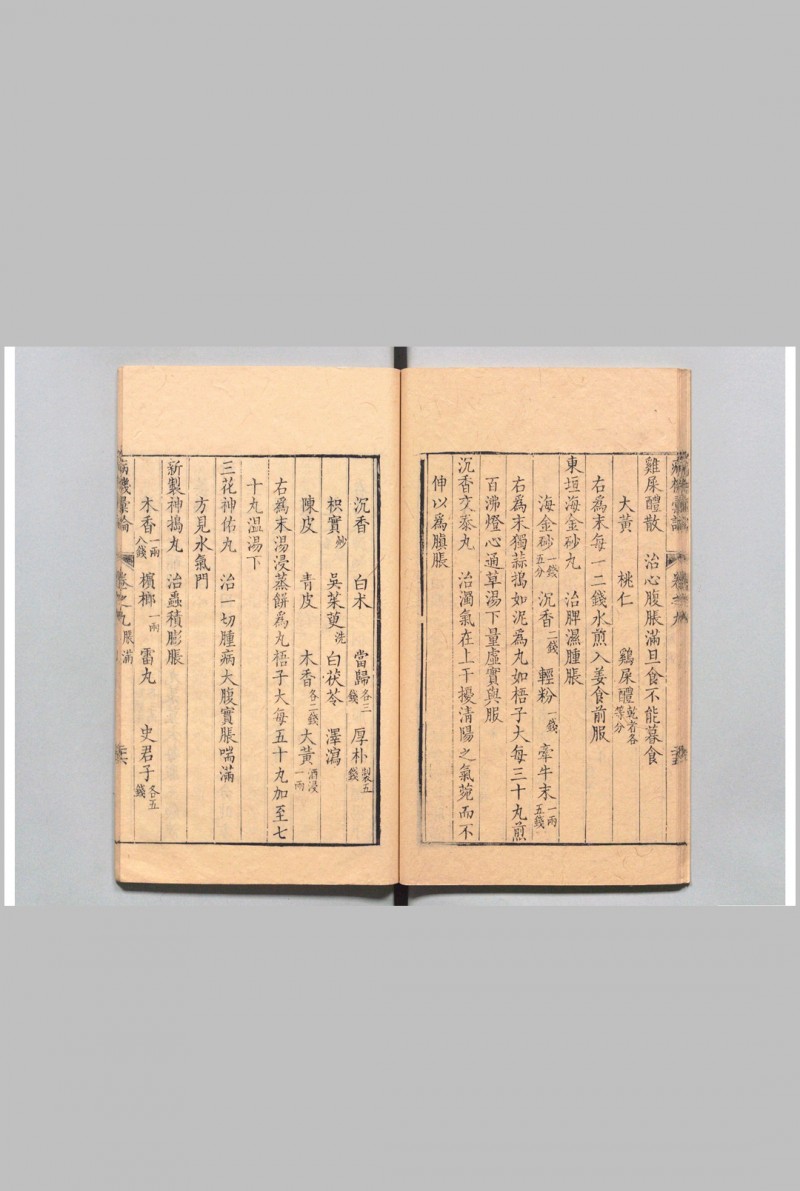 雞屎醴散　治心腹脹滿旦食不能暮食
大黃　桃仁　鷄屎醴乾者各等分
右爲末每一二錢水煎入姜食前服
東垣海金砂丸　治脾濕腫脹
海金砂一錢五分　沉香二錢　輕粉一錢　牽牛末一兩五錢
右爲末獨蒜搗如泥爲丸如梧子大每三十丸煎
百沸燈心通草湯下量虛實與服
沉香交泰丸　治濁氣在上干擾清陽之氣菀而不
伸以爲䐜脹
沉香　白术　當歸各三錢　厚朴製五錢
枳實炒　吳茱萸洗　白茯苓　澤瀉
陳皮　青皮　木香各二錢　大黃酒浸一兩
右爲末湯浸蒸餅爲丸梧子大每五十丸加至七
十丸温湯下
三花神佑丸　治一切腫病大腹實脹喘滿
方見水氣門
新製神搗丸　治蟲積膨脹
木香一兩八錢　檳榔一兩　雷丸　史君子各五錢
病機彙論　卷之九脹滿